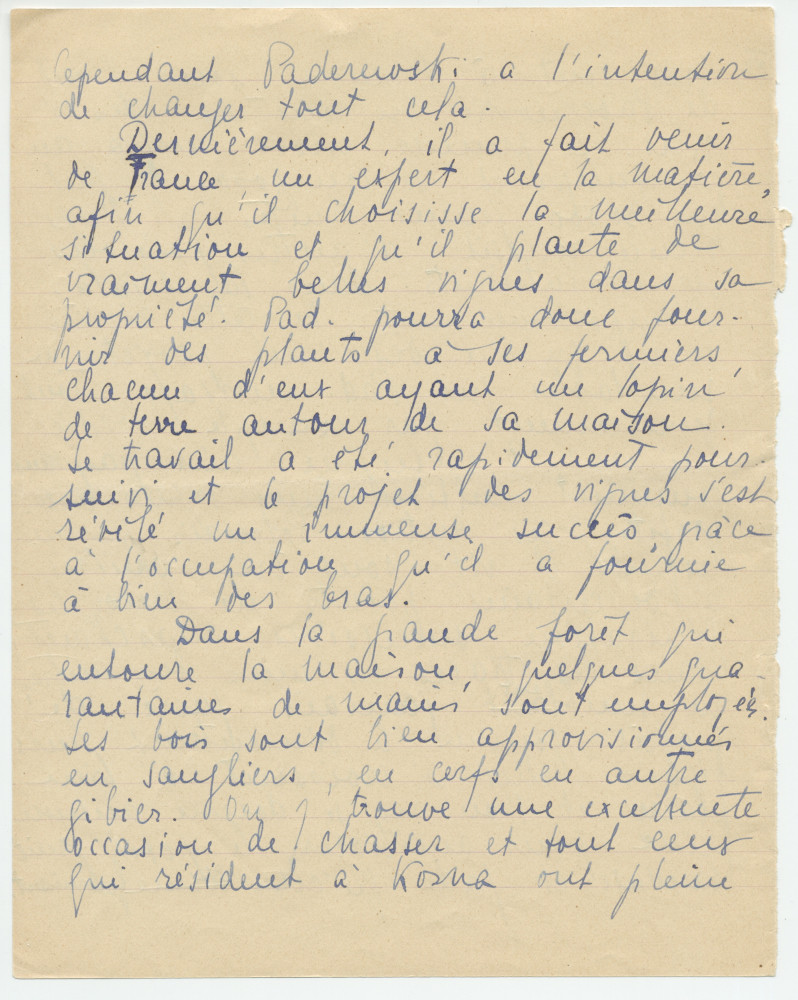 Cependant Paderewski a l'intention
de changer tout cela.
Dernièrement, il a fait venir
de France, un expert en la matière,
afin qu'il choisisse la meilleure
situation et qu'il plante de
vraiment belles vignes dans sa
propriété. Pad. pourra donc four-
nir des plants à ses fermiers,
chacun d'eux ayant un lopin
de terre autour de sa maison.
Le travail a été rapidement pour-
suivi et le projet des vignes s'est
révélé un immense succès grâce
à l'occupation qu'il a fournie
à bien des bras.
Dans la grande forêt qui
entoure la maison, quelques qua-
rantaines de mains sont employées.
Les bois sont bien approvisionnés
en sangliers, en cerfs en autre
gibier. On y trouve une excellente
occasion de chasser et tout ceux
qui résident à Kosna ont pleine